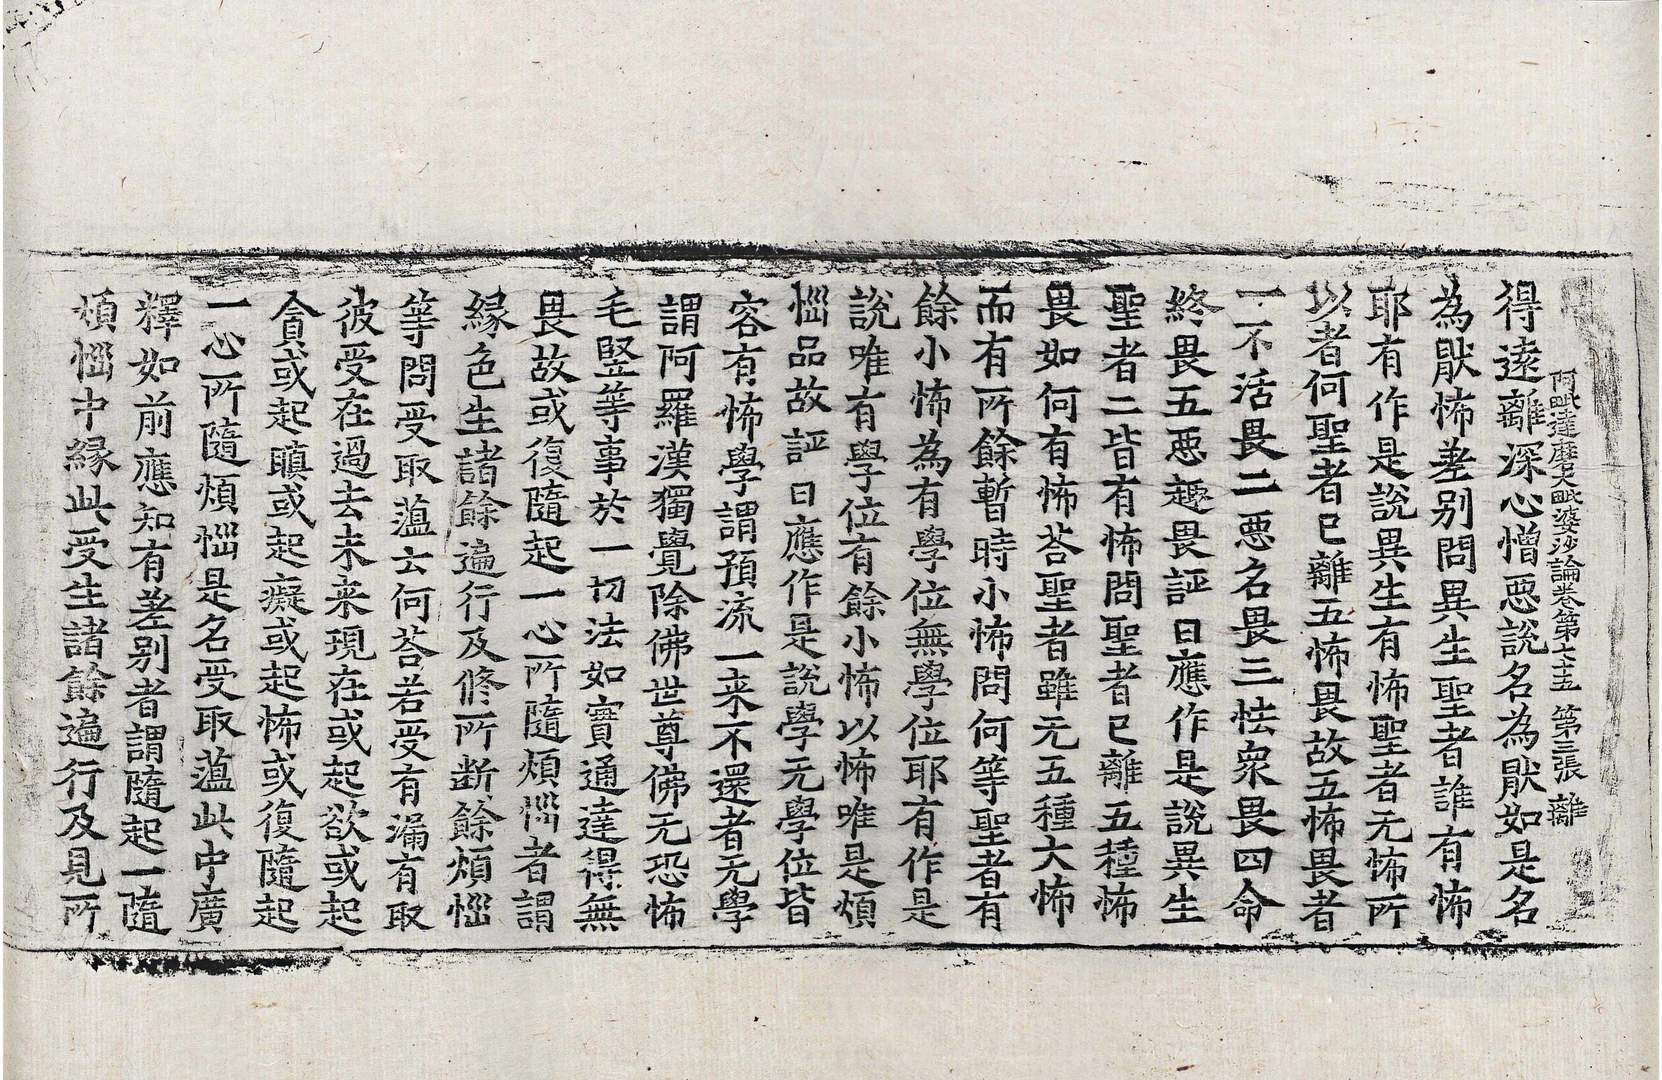 阿毗達磨大毗婆沙論卷第七十五 第三張 離
得遠離深心憎惡說名為猒如是名
為猒怖差别問異生聖者誰有怖
耶有作是說異生有怖聖者无怖所
以者何聖者已離五怖畏故五怖畏者
一不活畏二惡名畏三怯衆畏四命
終畏五惡趣畏評曰應作是說異生
聖者二皆有怖問聖者已離五種怖
畏如何有怖荅聖者雖无五種大怖
而有所餘暫時小怖問何等聖者有
餘小怖為有學位無學位耶有作是
說唯有學位有餘小怖以怖唯是煩
惱品故評曰應作是說學无學位皆
容有怖學謂預流一来不還者无學
謂阿羅漢獨覺除佛世尊佛无恐怖
毛竪等事於一切法如實通達得無
畏故或復隨起一心所隨煩惱者謂
緣色生諸餘遍行及修所断餘煩惱
等問受取蕰云何荅若受有漏有取
彼受在過去未来現在或起欲或起
貪或起瞋或起癡或起怖或復隨起
一心所隨煩惱是名受取蕰此中廣
釋如前應知有差别者謂隨起一隨
煩惱中緣此受生諸餘遍行及見所